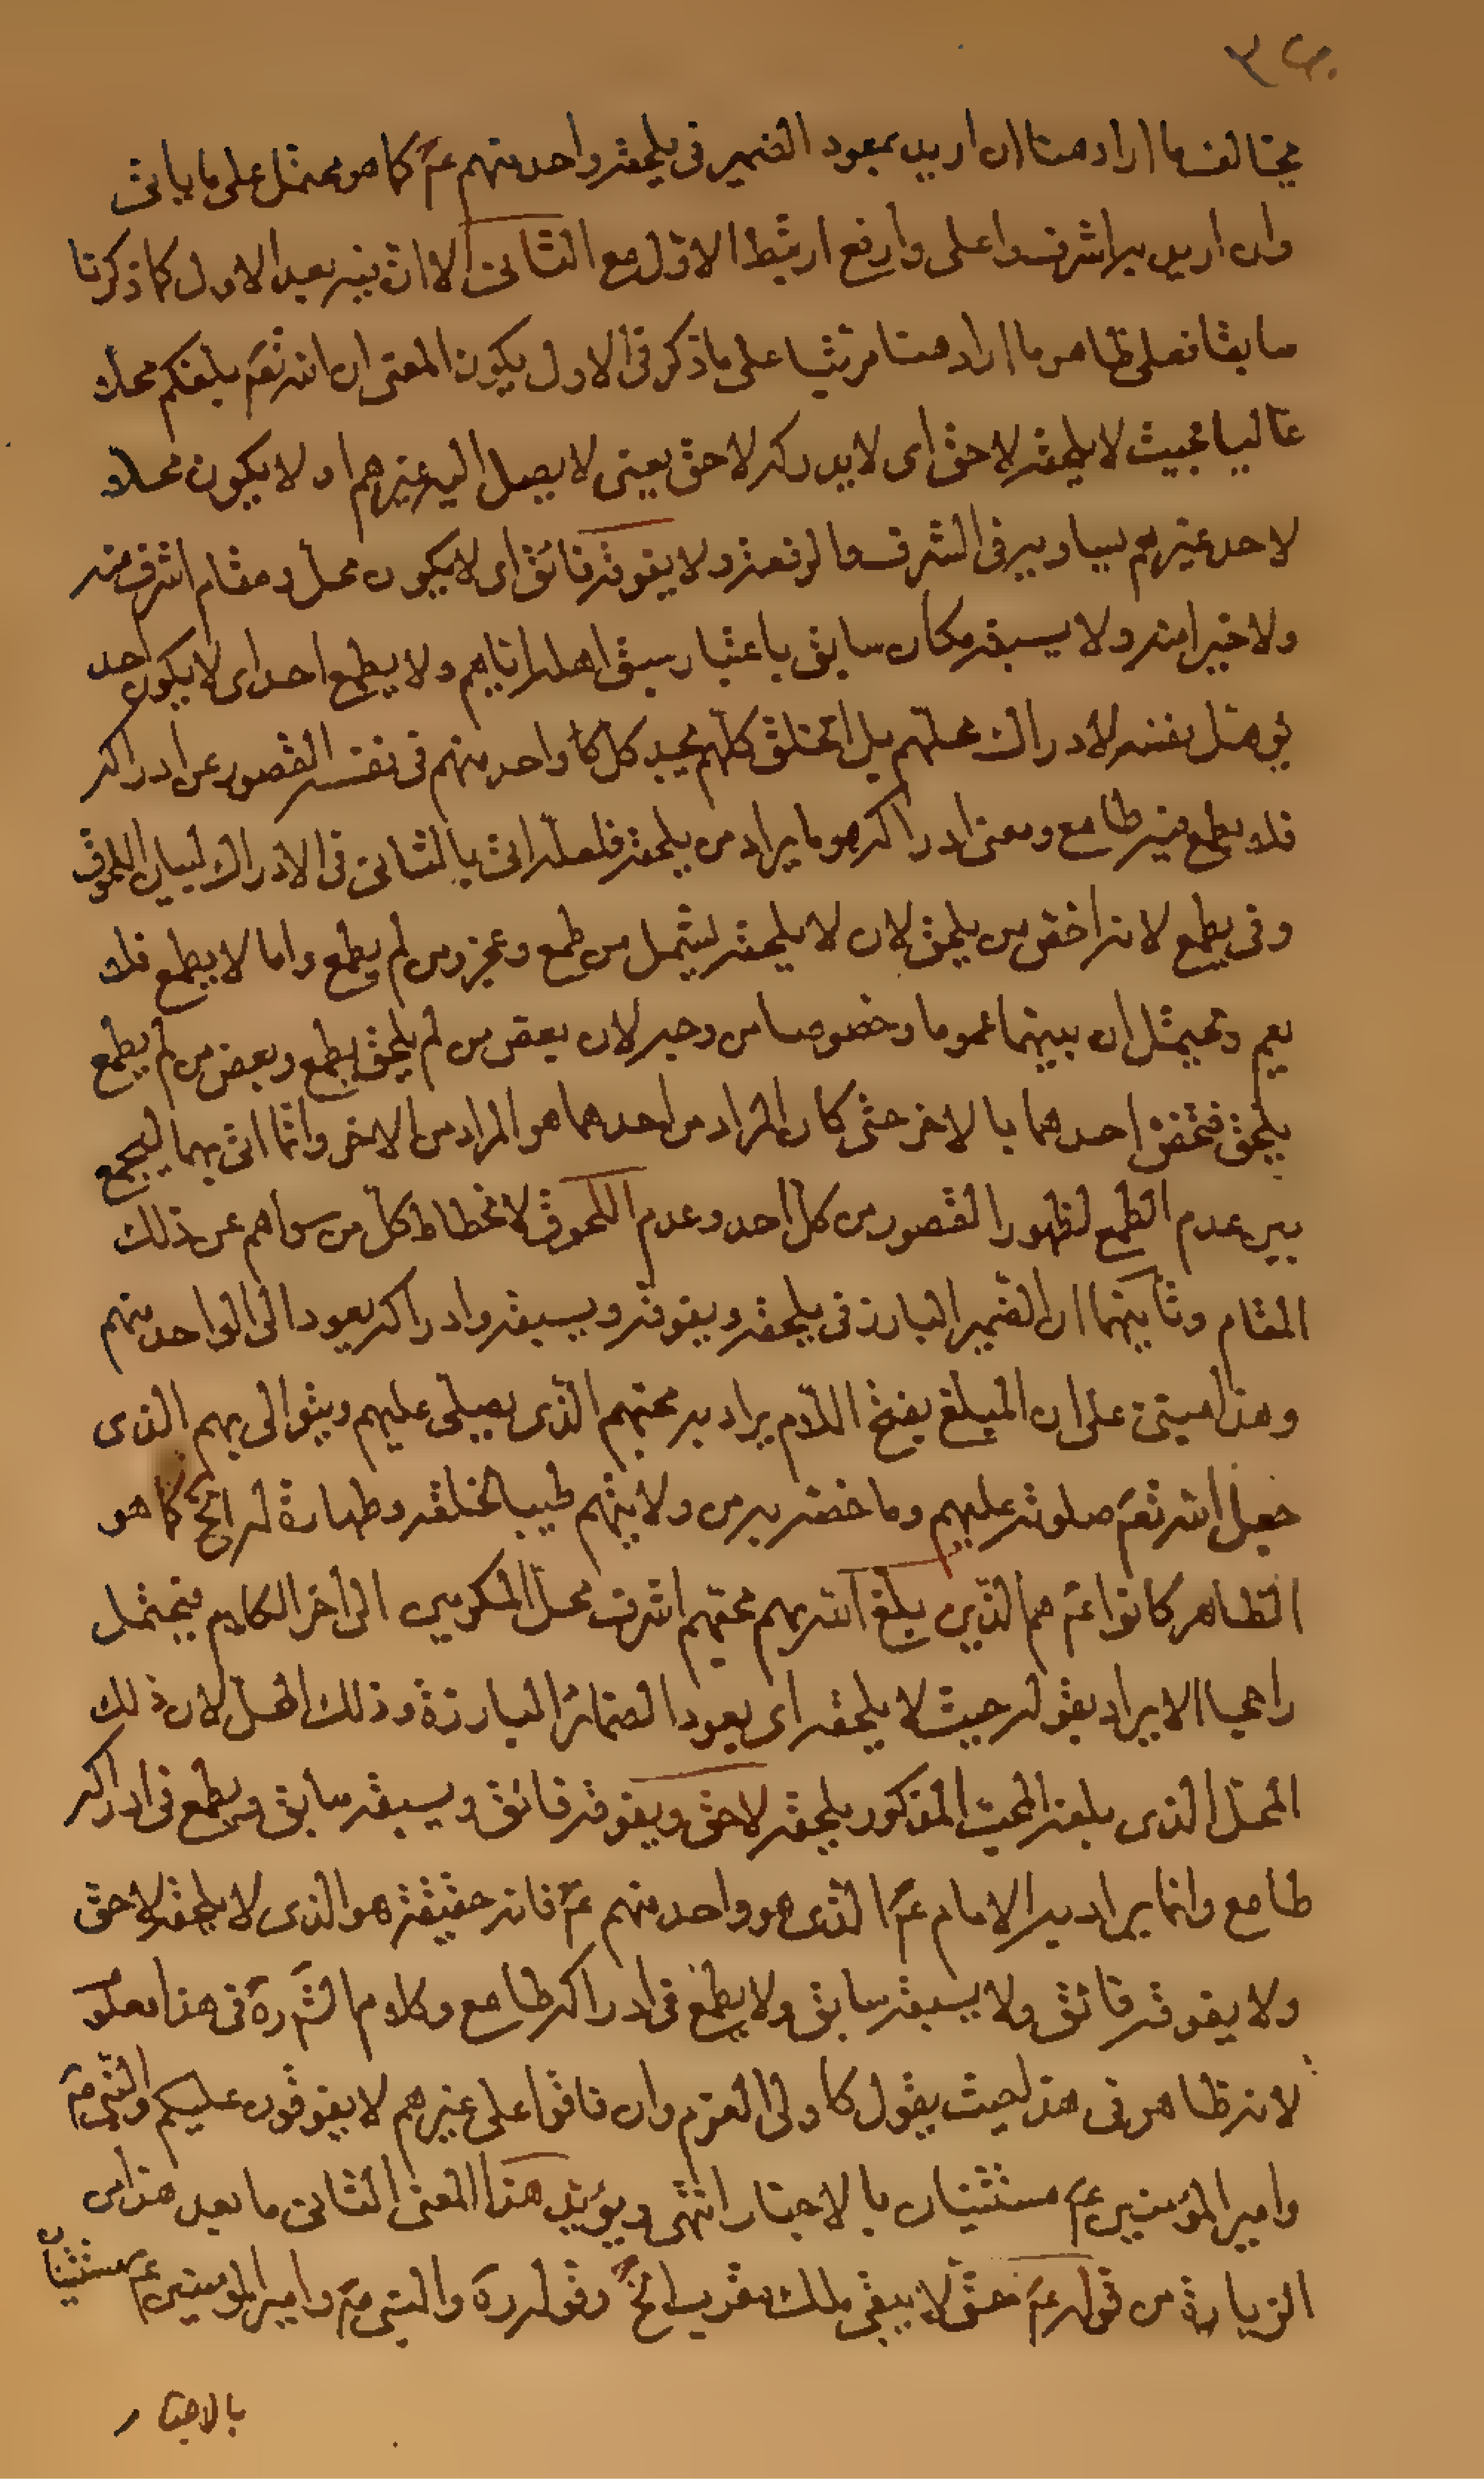 يخالف ما اراد هنا ان اريد بعود الضمير في يلحقه واحد منهم عم كما هو محتمل على ما ياتي
وان اريد به اشرف واعلى وارفع ارتبط الاول مع الثاني الا ان فيه بعد الاول كما ذكرنا
سابقا فعلى ظاهر ما اراد هنا مرتبا على ما ذكر في الاول يكون المعنى ان الله تعم بلغكم محلا
عاليا بحيث لا يلحقه لاحق اى لا يدركه لاحق يعنى لا يصل اليه غيرهم او لا يكون محلا
لاحد غيرهم يساويه في الشرف والرفعة ولا يفوقه فائق اى لا يكون محل ومقام اشرف منه
ولا خيرا منه ولا يسبقه مكان سابق باعتبار سبق اهله اياهم ولا يطمع احد اى لا يكون احد
يؤهل نفسه لادراك محلهم بل الخلق كلهم يجد كل واحد منهم في نفسه القصور عن ادراكه
فلا يطمع فيه طامع ومعنى ادراكه هو ما يراد من يلحقه فلعله اتى بالثاني في الادراك لبيان اللحوق
وفي يطمع لانه اخص من يلحق لان لا يلحقه يشمل من طمع وعجز ومن لم يطمع واما لا يطمع فلا
يعم ويحتمل ان بينهما عموما وخصوصا من وجه لان بعض من لم يلحق يطمع وبعض من لم يطمع
يلحق فتخفق احدهما بالاخر حتى كان المراد من احدهما هو المراد من الاخر وانما اتى بهما ليجمع
بين عدم الطمع لظهور القصور من كل احد وعدم اللحوق لانحطاط كل من سواهم عن ذلك
المقام وثانيهما ان الضمير البارز في يلحقه ويفوقه ويسبقه وادراكه يعود الى الواحد منهم
وهذا مبني على ان المبلغ بفتح اللام يراد به محبهم الذى يصلى عليهم ويتوالى بهم الذى
جعل الله تعم صلوته عليهم وما خصه به من ولايتهم طيبا لخلقه وطهارة له الخ كما هو
الظاهر كانوا عم هم الذين بلغ الله بهم محبهم اشرف محل المكرمين الى اخر الكلام فيحتمل
راجيا الايراد بقوله حيث لا يلحقه اى يعود الضمائر البارزة وذلك المحل لان ذلك
المحل الذى بلغه المحب المذكور يلحقه لاحق ويفوقه فائق ويسبقه سابق ويطمع في ادراكه
طامع وانما يراد به الامام عم الذى هو واحد منهم عم فانه حقيقة هو الذى لا يلحقه لاحق
ولا يفوقه فائق ولا يسبقه سابق ولا يطمع في ادراكه طامع وكلام الش ره في هذا معلو
لانه ظاهر في هذا حيث يقول كاولى العزم وان فاقوا على غيرهم لا يفوقون عليكم والنبى ص
وامير المؤمنين عم مستثنيان بالاخبار انتهى ويؤيد هذا المعنى الثاني ما بعد هذا من
الزيارة من قوله عم حتى لا يبقى ملك مقرب الخ وقوله ره والنبى ص وامير المؤمنين عم مستثنيان
بالاخبار